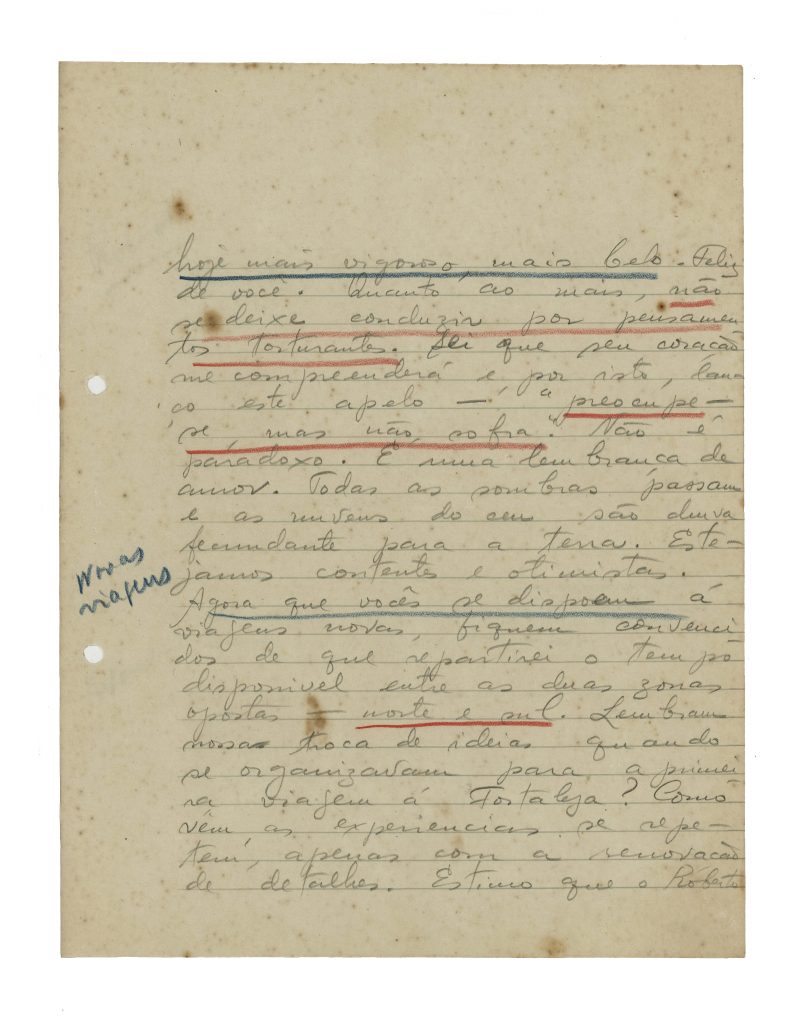 hoje mais vigoroso, mais belo. Feliz
de você. Quanto ao mais, não
se deixe conduzir por pensamen
tos torturantes. Sei que seu coração
me compreenderá e, por isto, lan
ço este apelo — "preocupe-
se, mas não sofra." Não é
paradoxo. É uma lembrança de
amor. Todas as sombras passam
e as nuvens do ceu são chuva
fecundante para a terra. Este-
jamos contentes e otimistas.
Novas
viagens
Agora que vocês se dispoem á
viagens novas, fiquem convenci
dos de que repartirei o tempo
disponivel entre as duas zonas
opostas — norte e sul. Lembram
nossa troca de ideias quando
se organizavam para a primei
ra viagem á Fortaleza? Como
vêm, as experiencias se repe-
tem, apenas com a renovação
de detalhes. Estimo que o Roberto